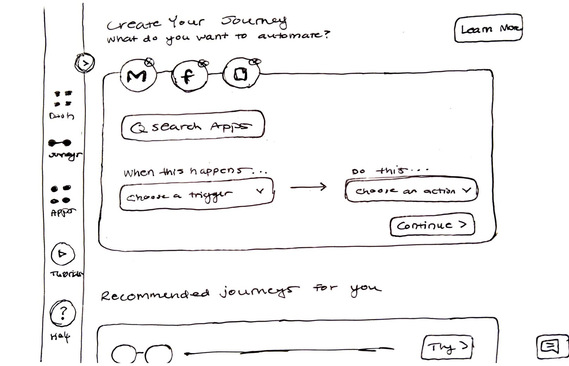 Create Your Journey
What do you want to automate?
Learn More
Dash
Journeys
Apps
Tutorials
?
Help
M
f
Search Apps
When this happens...
Choose a trigger
Do this...
Choose an action
Continue >
Recommended journeys for you
Try >